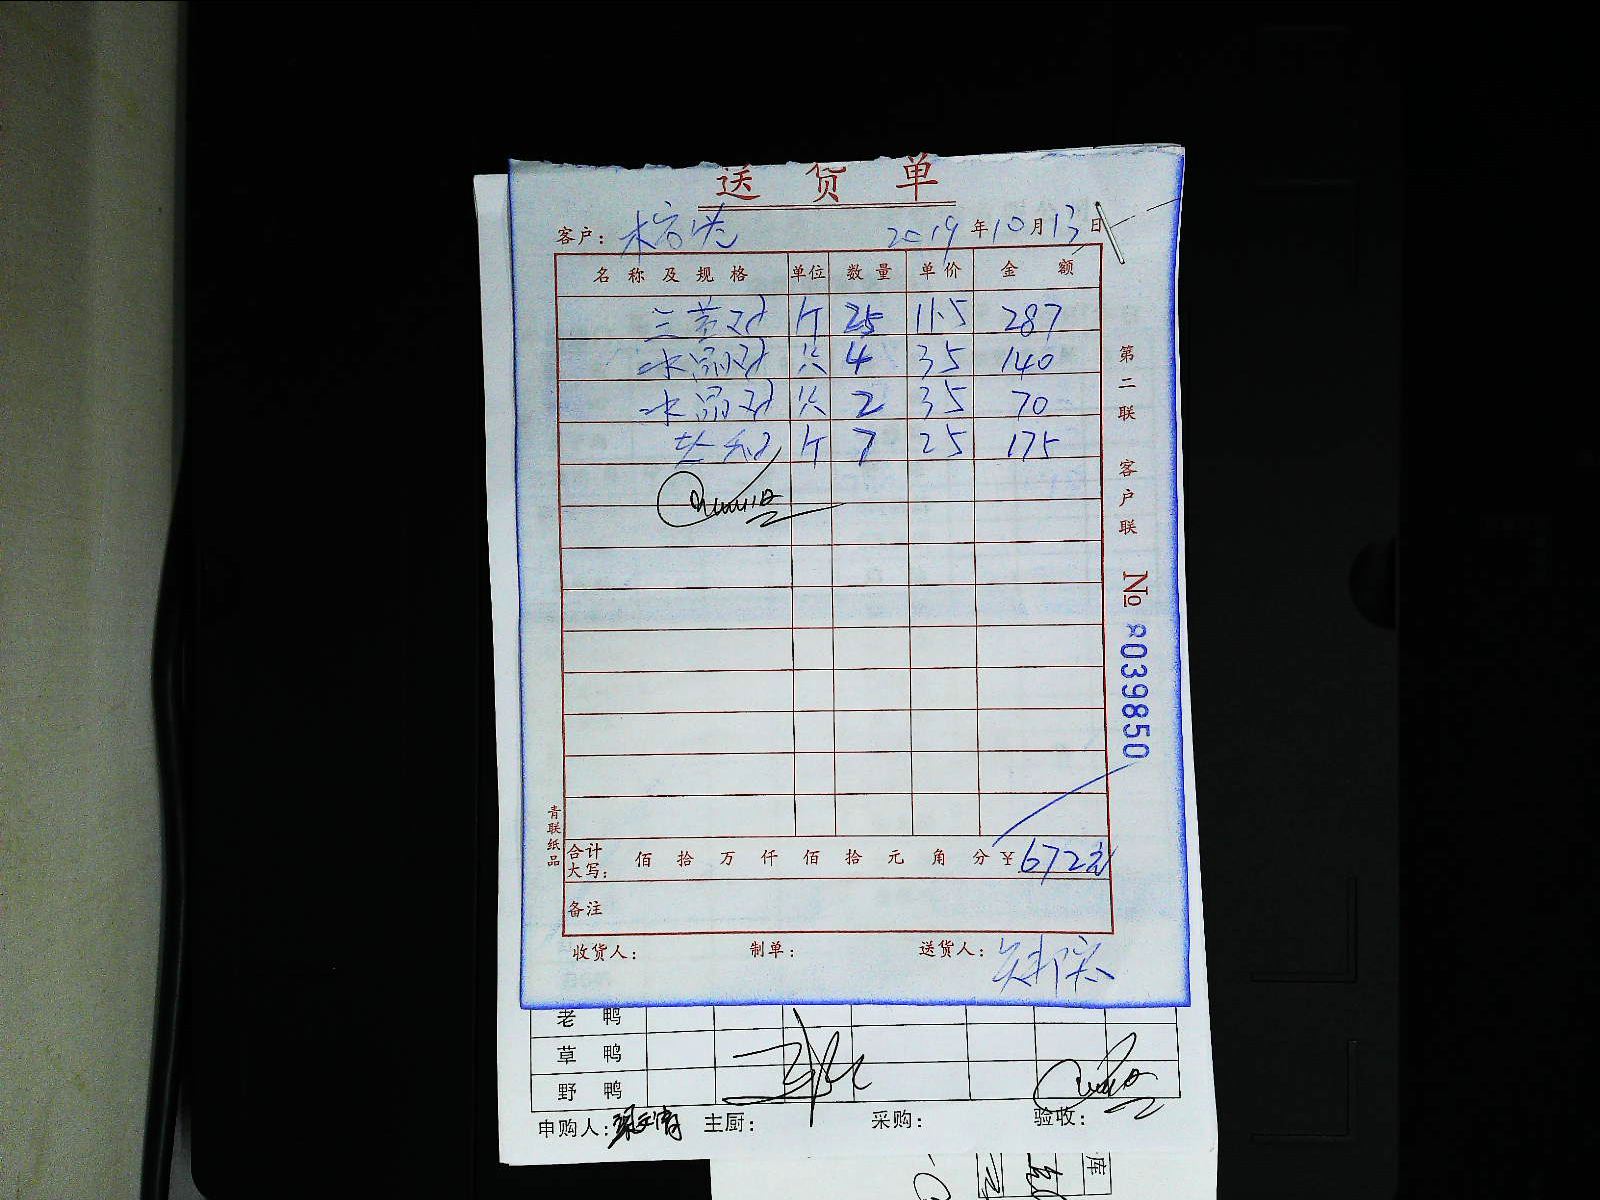 送货单
客户： 2019年10月13日
名称及规格 单位 数量 单价 金额
三黄 25 11.5 287
水晶 只 4 35 140
水晶 只 2 35 70
7 25 175
第二联 客户联
№ 8039850
青联纸品
合计大写： 佰拾万仟佰拾元角分 ¥672元
备注
收货人： 制单： 送货人：
老鸭
草鸭
野鸭
申购人： 主厨： 采购： 验收：
库